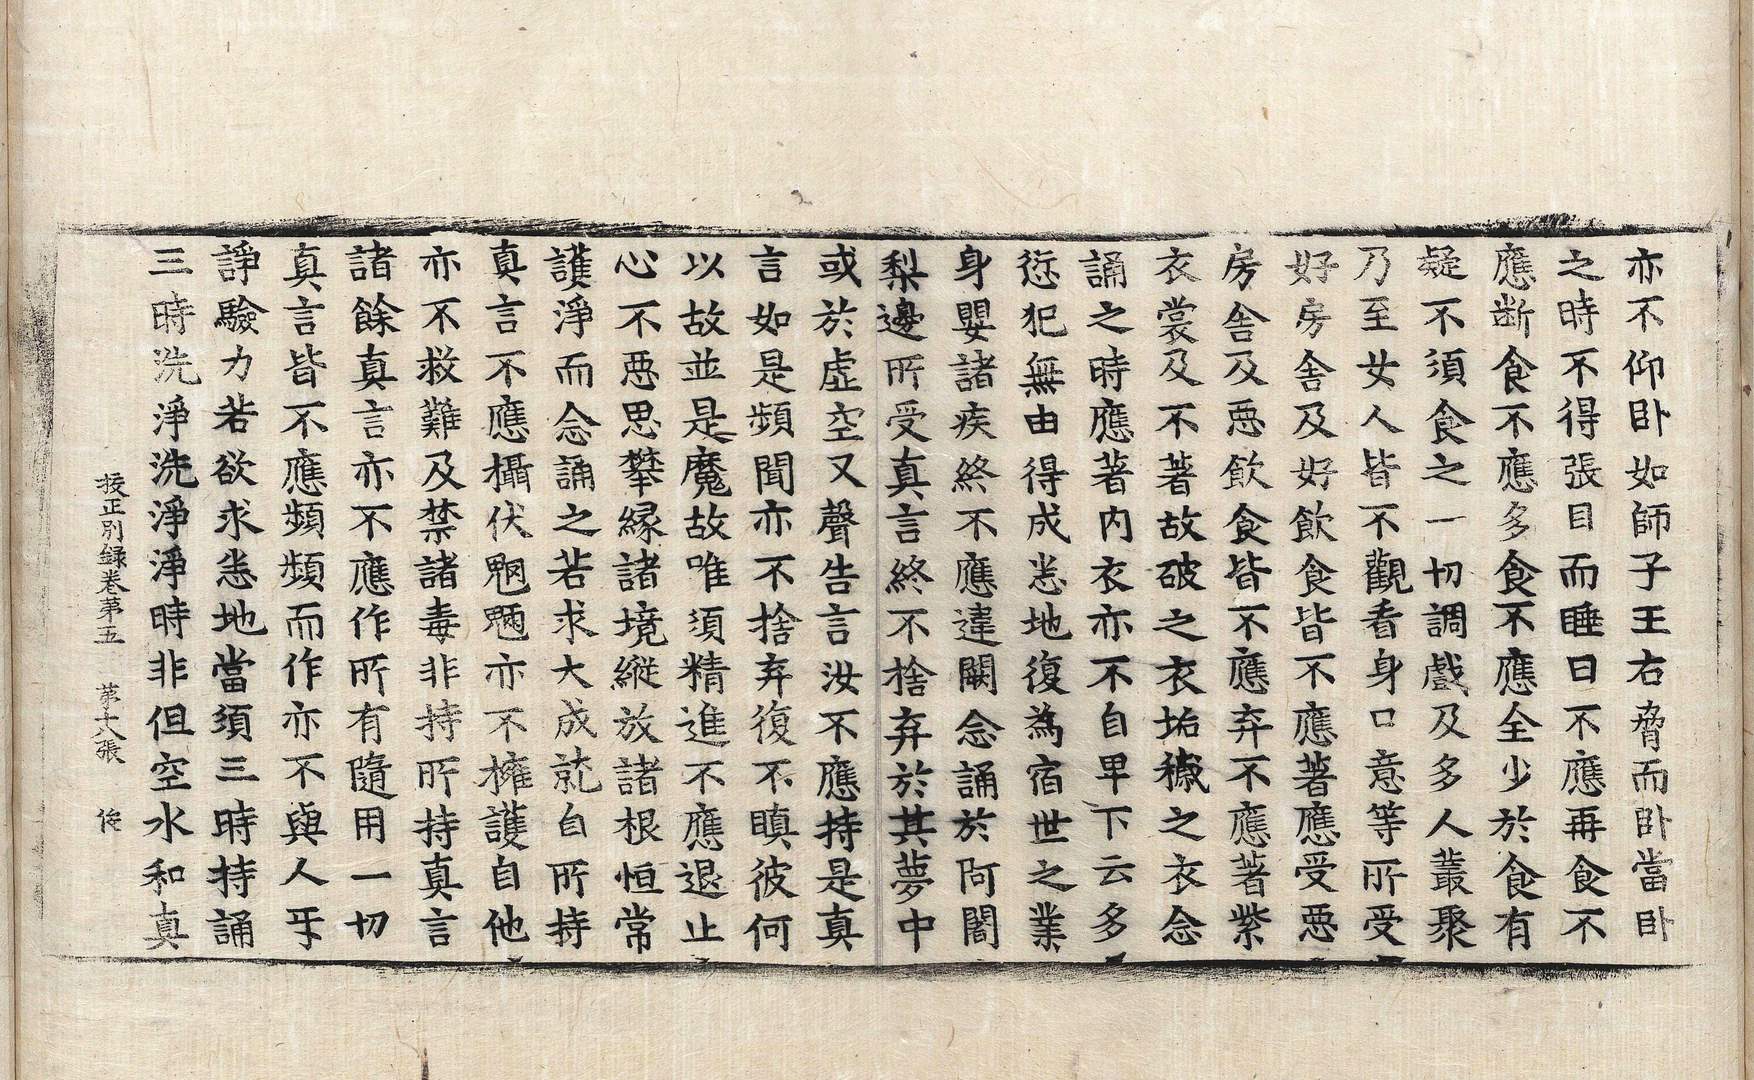 亦不仰卧如師子王右脅而卧當卧
之時不得張目而睡日不應再食不
應断食不應多食不應全少於食有
疑不須食之一切調戲及多人叢聚
乃至女人皆不觀看身口意等所受
好房舍及好飲食皆不應著應受惡
房舍及惡飲食皆不應弃不應著紫
衣裳及不著故破之衣垢穢之衣念
誦之時應著內衣亦不自卑下云多
愆犯無由得成悉地復為宿世之業
身嬰諸疾終不應違闕念誦於阿闍
梨邊所受真言終不捨弃於其夢中
或於虛空又聲告言汝不應持是真
言如是頻聞亦不捨弃復不瞋彼何
以故並是魔故唯須精進不應退止
心不惡思攀緣諸境縱放諸根恒常
護淨而念誦之若求大成就自所持
真言不應攝伏魍魎亦不擁護自他
亦不救難及禁諸毒非持所持真言
諸餘真言亦不應作所有隨用一切
真言皆不應頻頻而作亦不與人㸦
諍驗力若欲求悉地當須三時持誦
三時洗淨洗淨淨時非但空水和真
挍正別錄卷第五　第十八張　俊